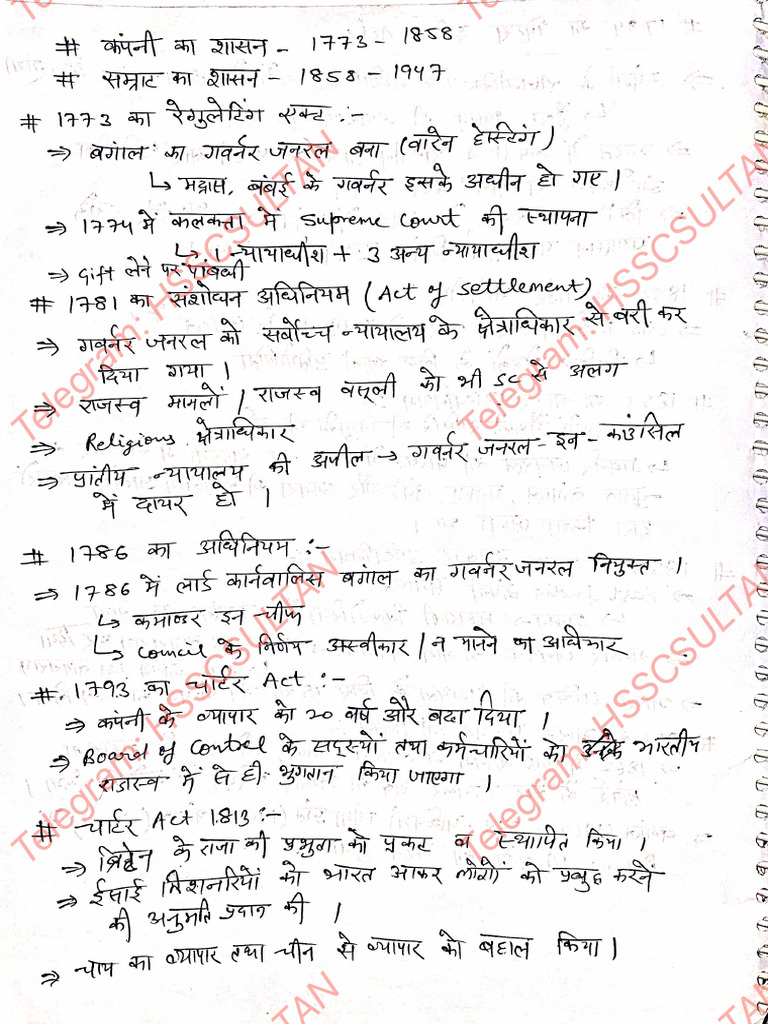 # कंपनी का शासन - 1773 - 1858
# सम्राट का शासन - 1858 - 1947
# 1773 का रेगुलेटिंग एक्ट :-
⇒ बगाल का गवर्नर जनरल बना (वारेन हेस्टिंग)
↳ मद्रास, बंबई के गवर्नर इसके अधीन हो गए।
⇒ 1774 में कलकता में Supreme Court की स्थापना
↳ 1 न्यायाधीश + 3 अन्य न्यायाधीश
⇒ Gift लेने पर पाबंधी
# 1781 का संशोधन अधिनियम (Act of Settlement)
⇒ गवर्नर जनरल को सर्वोच्च न्यायालय के क्षेत्राधिकार से बरी कर
दिया गया।
⇒ राजस्व मामलों / राजस्व वसूली को भी SC से अलग
⇒ Religious क्षेत्राधिकार
⇒ प्रांतीय न्यायालय की अपील → गवर्नर जनरल-इन-काउंसिल
में दायर हो।
# 1786 का अधिनियम :-
⇒ 1786 में लार्ड कार्नवालिस बंगाल का गवर्नर जनरल नियुक्त।
↳ कमाण्डर इन चीफ
↳ Council के निर्णय अस्वीकार / न मानने का अधिकार
# 1793 का चार्टर Act :-
⇒ कंपनी के व्यापार को 20 वर्ष और बढा दिया।
⇒ Board of Control के सदस्यों तथा कर्मचारियों को उनके भारतीय
राजस्व में से ही भुगतान किया जाएगा।
# चार्टर Act 1813 :-
⇒ ब्रिटेन के राजा की प्रभुता को प्रकट व स्थापित किया।
⇒ ईसाई मिशनरियों को भारत आकर लोगो को प्रबुद्ध करने
की अनुमति प्रदान की।
⇒ चाय का व्यापार तथा चीन से व्यापार को बहाल किया।
Telegram: HSSCSULTAN
Telegram: HSSCSULTAN
Telegram: HSSCSULTAN
Telegram: HSSCSULTAN